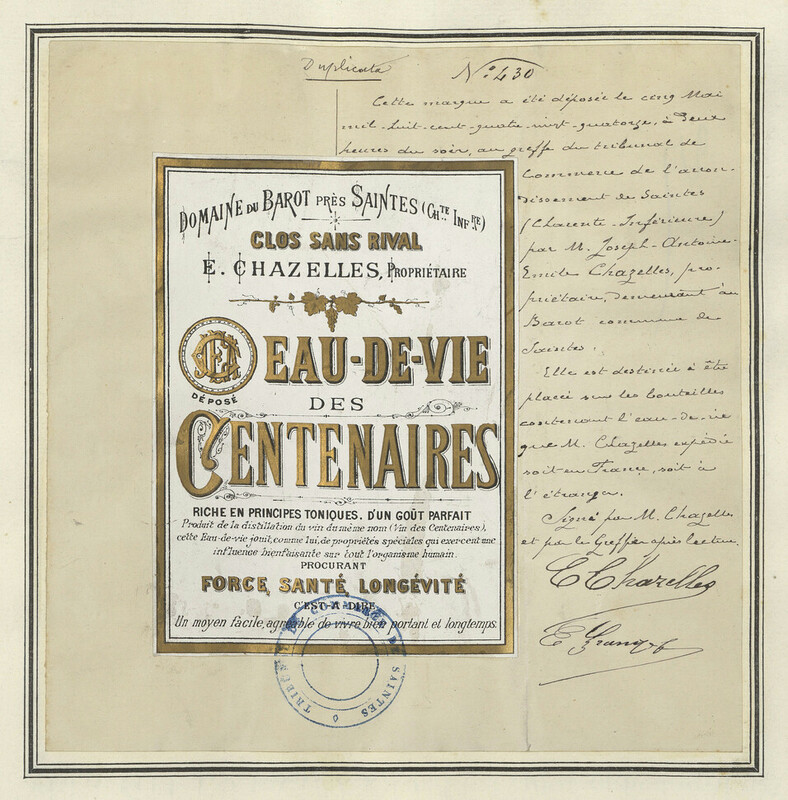 Duplicata
N° 430
Cette marque a été déposée le cinq Mai
mil-huit-cent-quatre-vingt-quatorze, à deux
heures du soir, au greffe du tribunal de
Commerce de l'arron-
dissement de Saintes
(Charente-Inférieure)
par M. Joseph-Antoine-
Emile Chazelles, pro-
priétaire, demeurant au
Barot commune de
Saintes.
Elle est destinée à être
placée sur les bouteilles
contenant l'eau-de-vie
que M. Chazelles expédie
soit en France, soit à
l'étranger.
Signé par M. Chazelles
et par le Greffier après lecture.
E Chazelles
DOMAINE DU BAROT PRÈS SAINTES (CHTE INFRE)
CLOS SANS RIVAL
E. CHAZELLES, PROPRIÉTAIRE
DÉPOSÉ
EAU-DE-VIE
DES
CENTENAIRES
RICHE EN PRINCIPES TONIQUES. D'UN GOÛT PARFAIT
Produit de la distillation du vin du même nom (Vin des Centenaires),
cette Eau-de-vie jouit, comme lui, de propriétés spéciales qui exercent une
influence bienfaisante sur tout l'organisme humain.
PROCURANT
FORCE, SANTÉ, LONGÉVITÉ
C'EST-A-DIRE:
Un moyen facile, agréable de vivre bien portant et longtemps.
DE SAINTES